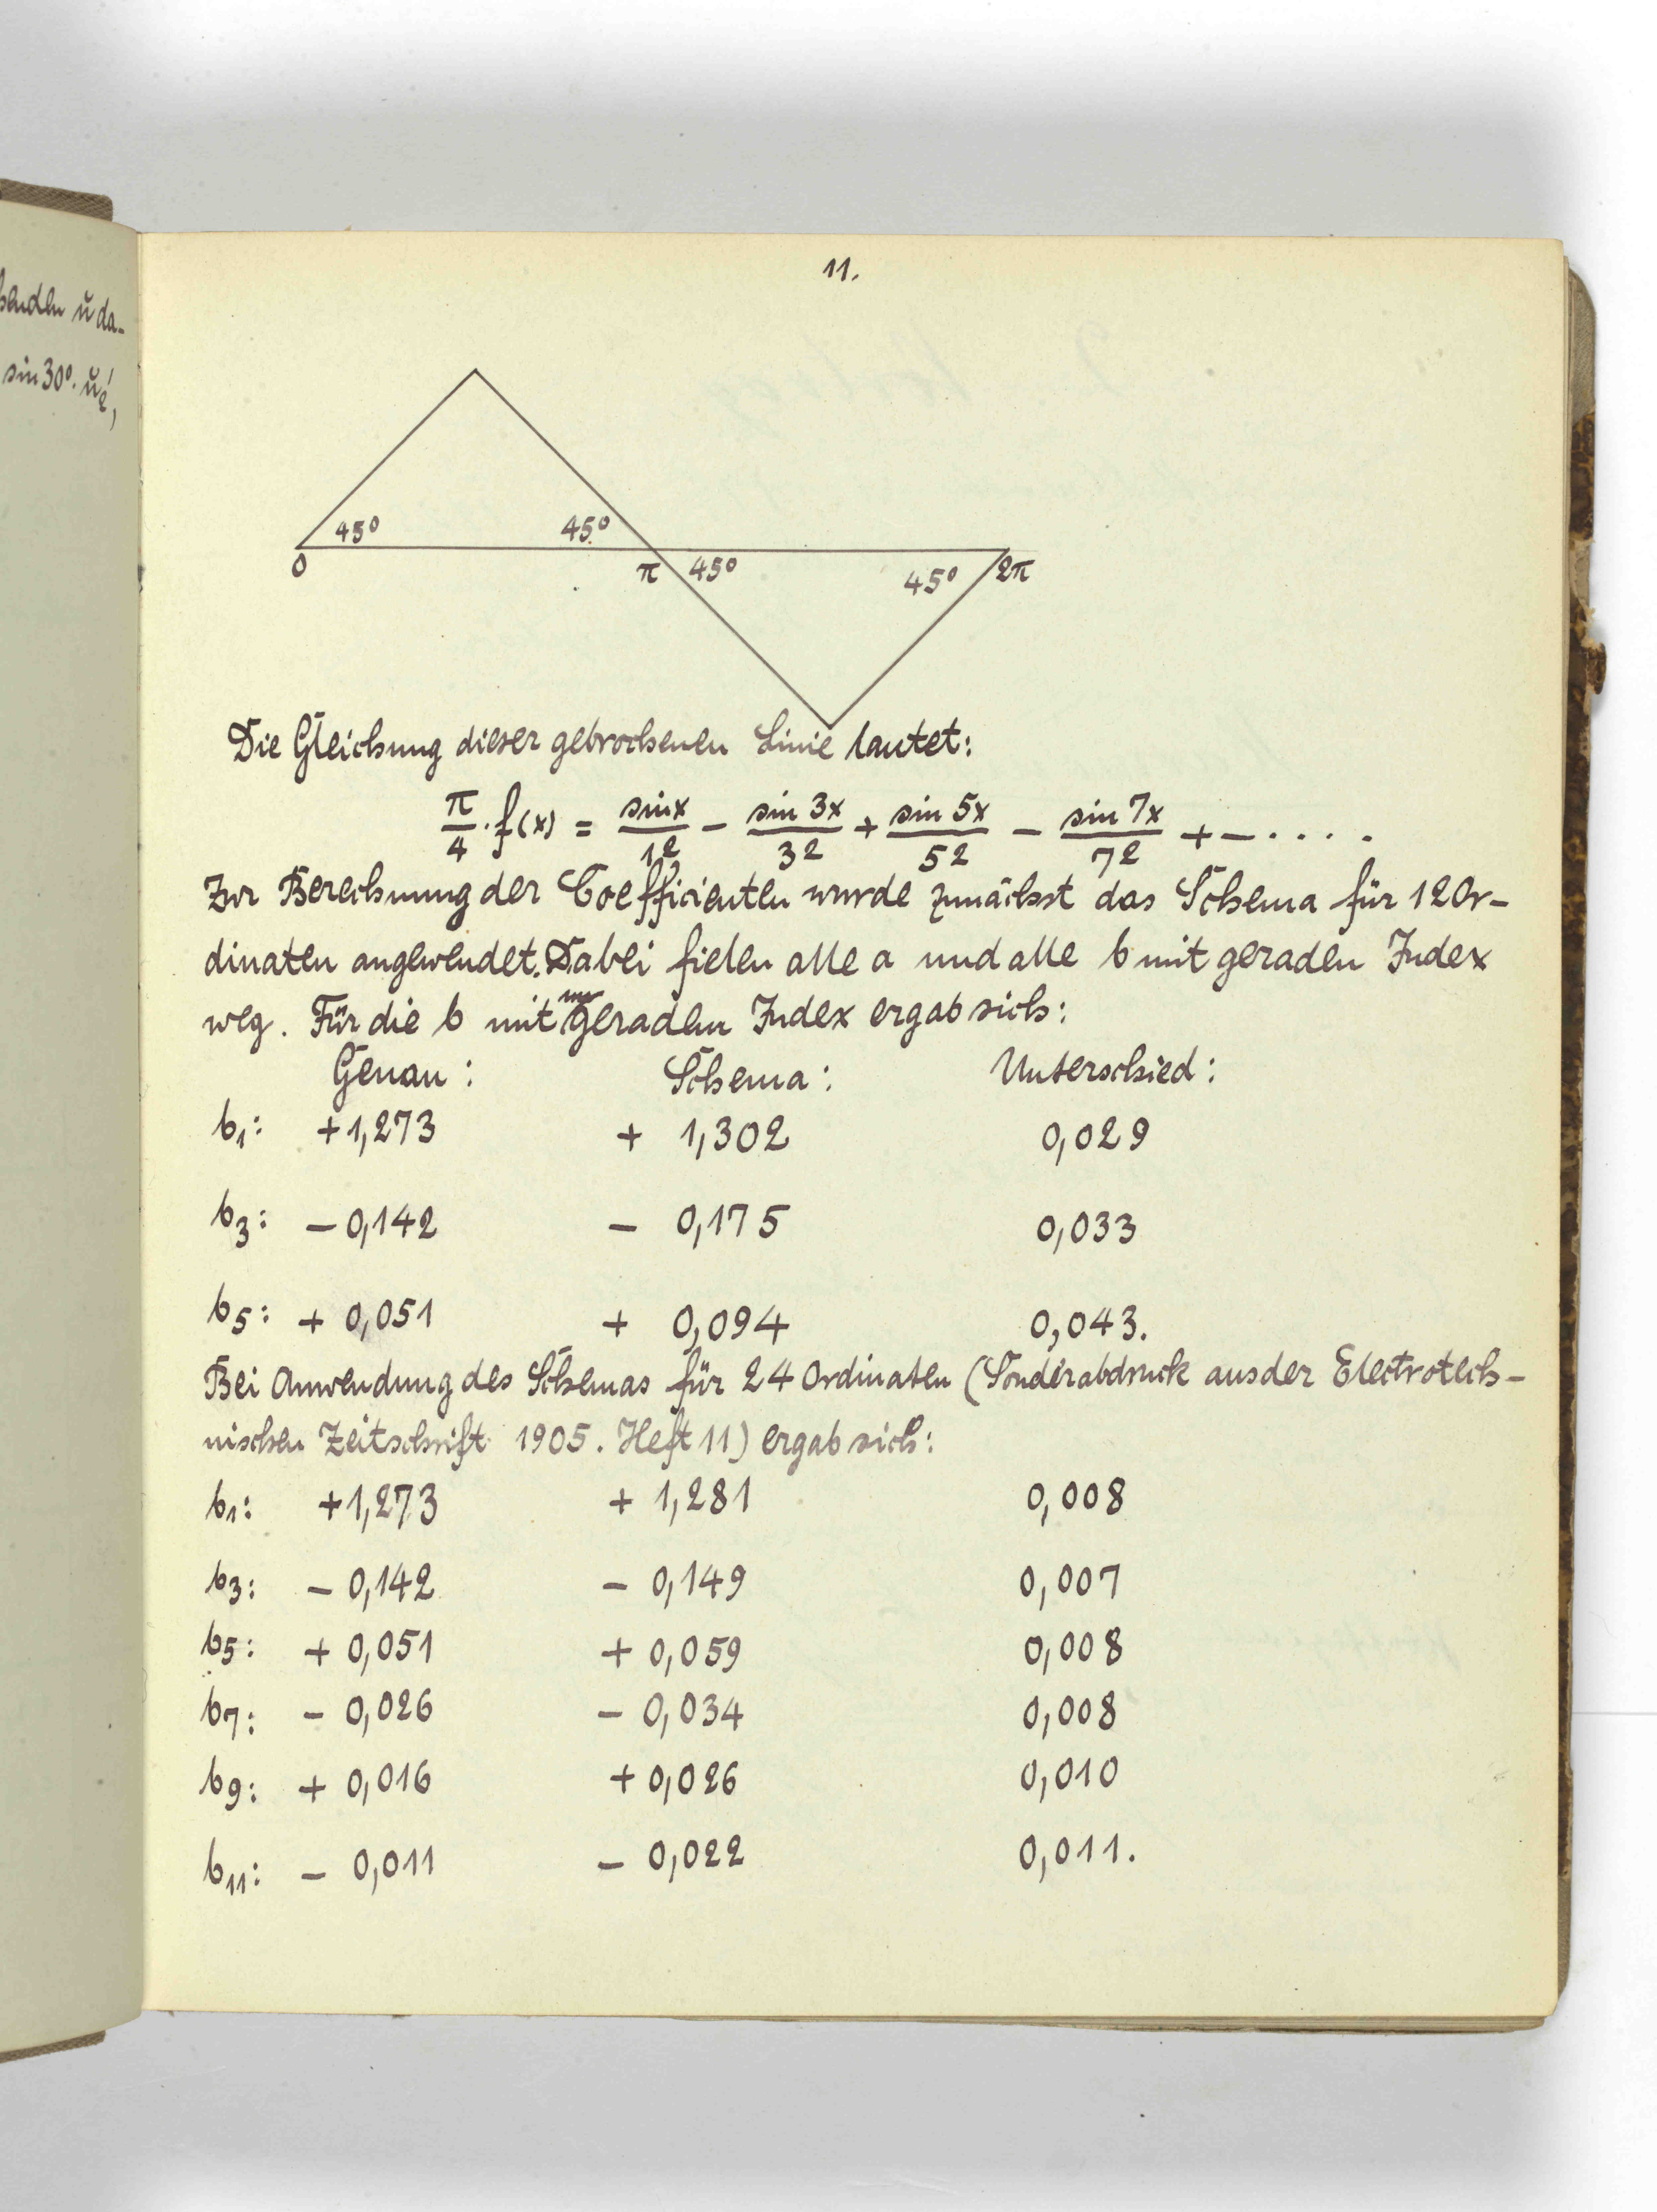 11.
45° 45°
0 π 45° 45° 2π
Die Gleichung dieser gebrochenen Linie lautet:
π/4 · f(x) = sin x/1² − sin 3x/3² + sin 5x/5² − sin 7x/7² + − . . . .
Zur Berechnung der Coefficienten wurde zunächst das Schema für 12 Or-
dinaten angewendet. Dabei fielen alle a und alle b mit geraden Index
weg. Für die b mit ungeraden Index ergab sich:
Genau: Schema: Unterschied:
b₁: +1,273 + 1,302 0,029
b₃: − 0,142 − 0,175 0,033
b₅: + 0,051 + 0,094 0,043.
Bei Anwendung des Schemas für 24 Ordinaten (Sonderabdruck aus der Electrotech-
nischen Zeitschrift 1905. Heft 11) ergab sich:
b₁: +1,273 + 1,281 0,008
b₃: − 0,142 − 0,149 0,007
b₅: + 0,051 + 0,059 0,008
b₇: − 0,026 − 0,034 0,008
b₉: + 0,016 + 0,026 0,010
b₁₁: − 0,011 − 0,022 0,011.